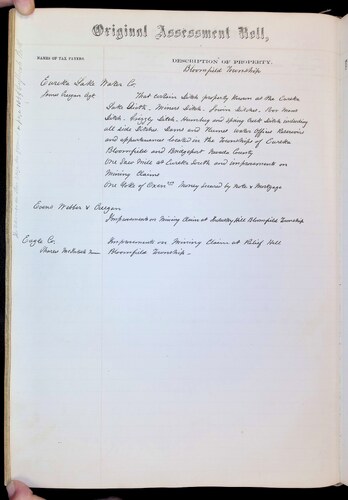 Original Assessment Roll,
NAMES OF TAX PAYERS.
DESCRIPTION OF PROPERTY.
Bloomfield Township
Eureka Lake Water Co
That certain Ditch property known as the Eureka
Lake Ditch, Miners Ditch,
Ditch, Grizzly Ditch, and Spring Creek Ditch including
all side Ditches Dams and Flumes Water Offices Reservoirs
and appurtenances located in the Townships of Eureka
Bloomfield and Bridgeport Nevada County
One Saw Mill at Eureka South and improvements on
Mining Claims
One Yoke of Oxen Money secured by note & Mortgage
Evans Webber & Creegan
Improvements on Mining Claim at Hill Bloomfield Township
Eagle Co.
Improvements on Mining Claim at Relief Hill
Bloomfield Township